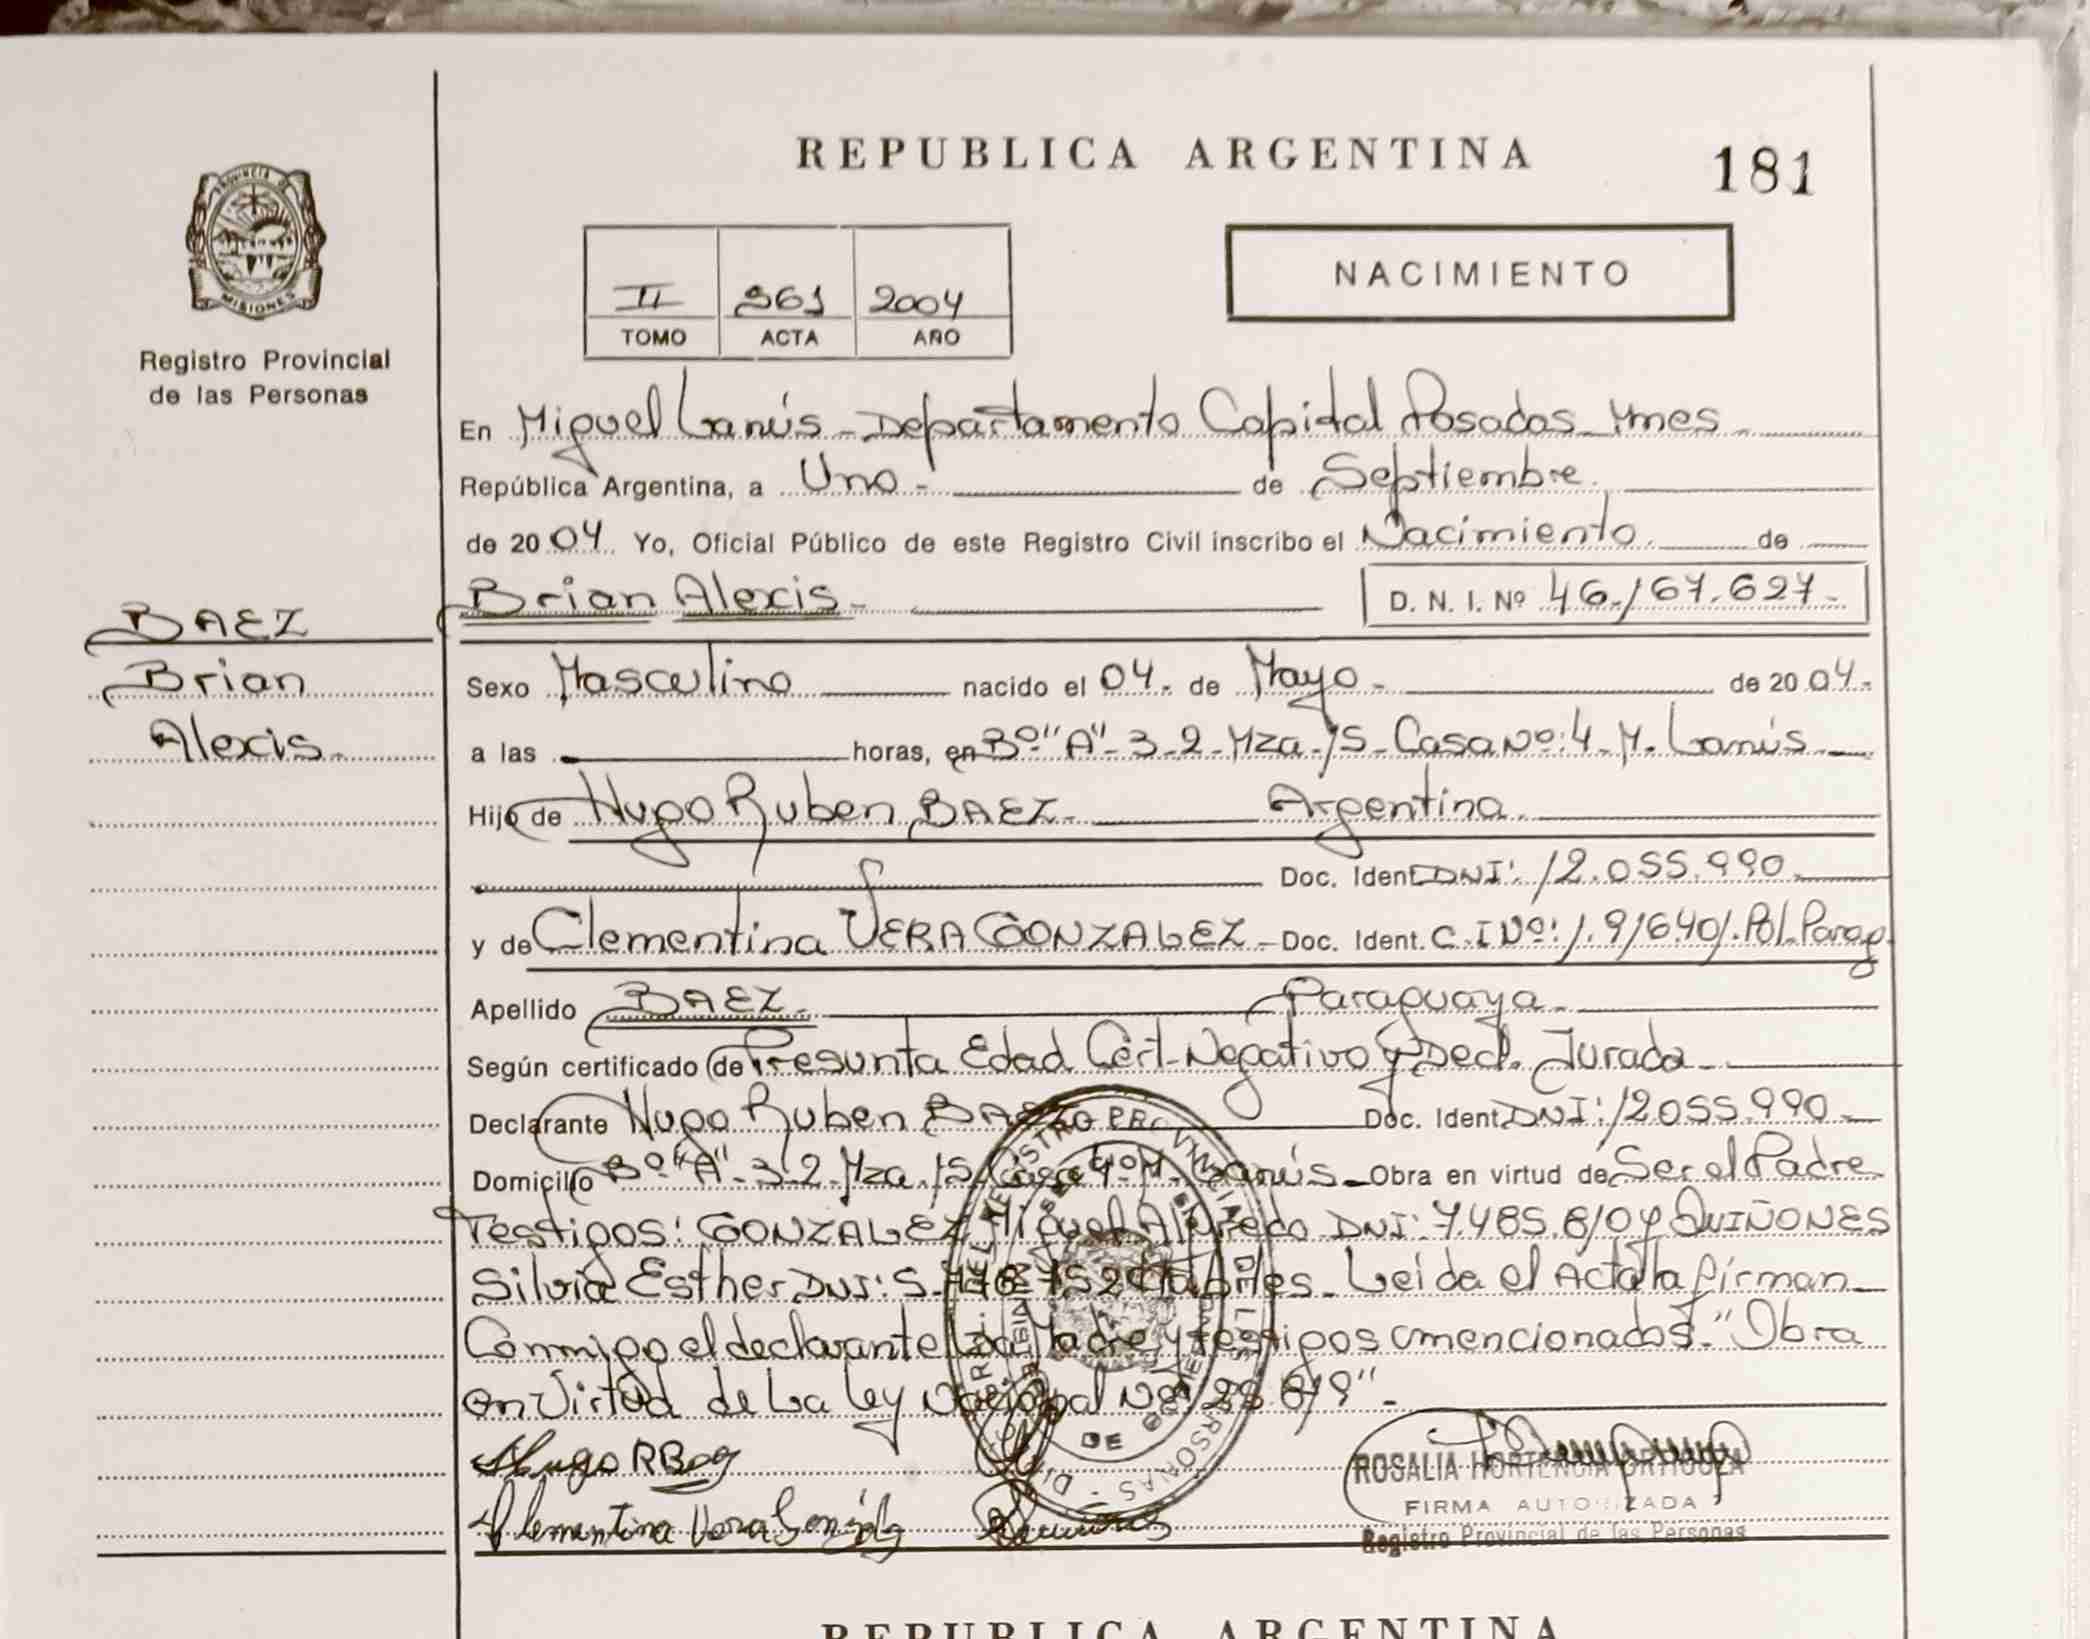 REPUBLICA ARGENTINA
181
PROVINCIA DE
MISIONES
Registro Provincial
de las Personas
II 961 2004
TOMO ACTA AÑO
NACIMIENTO
En Miguel Lanús - Departamento Capital Posadas - Mnes
República Argentina, a Uno.- de Septiembre.
de 2004. Yo, Oficial Público de este Registro Civil inscribo el Nacimiento. de
BAEZ
Brian
Alexis.
Brian Alexis. D. N. I. Nº 46.167.627.
Sexo Masculino nacido el 04. de Mayo. de 2004.
a las horas, en Bº "A" - 3-2- Mza. 15- Casa Nº: 4- M. Lanús.
Hijo de Hugo Ruben BAEZ. Argentina.
Doc. Ident DNI: 12.055.990.
y de Clementina VERA GONZALEZ - Doc. Ident. C. I Nº: 1.91640/. Pol. Parag.
Apellido BAEZ. Paraguaya.
Según certificado de Presunta Edad Cert. Negativo y Decl. Jurada
Declarante Hugo Ruben BAEZ Doc. Ident DNI: 12055.990.
Domicilio Bº "A" - 3-2- Mza. 15 Casa 4- M. Lanús - Obra en virtud de Ser el Padre
Testigos: GONZALEZ Miguel Alfredo DNI: 7.485.610 y QUIÑONES
Silvia Esther DNI: hábiles. Leida el Acta la firman
Conmigo el declarante La Madre y testigos mencionados. "Obra
en Virtud de La Ley Nacional Nº
Hugo R Baez
Clementina Vera Gonzalez
ROSALIA HORTENCIA ORTIGOZA
FIRMA AUTORIZADA
Registro Provincial de las Personas
REPUBLICA ARGENTINA